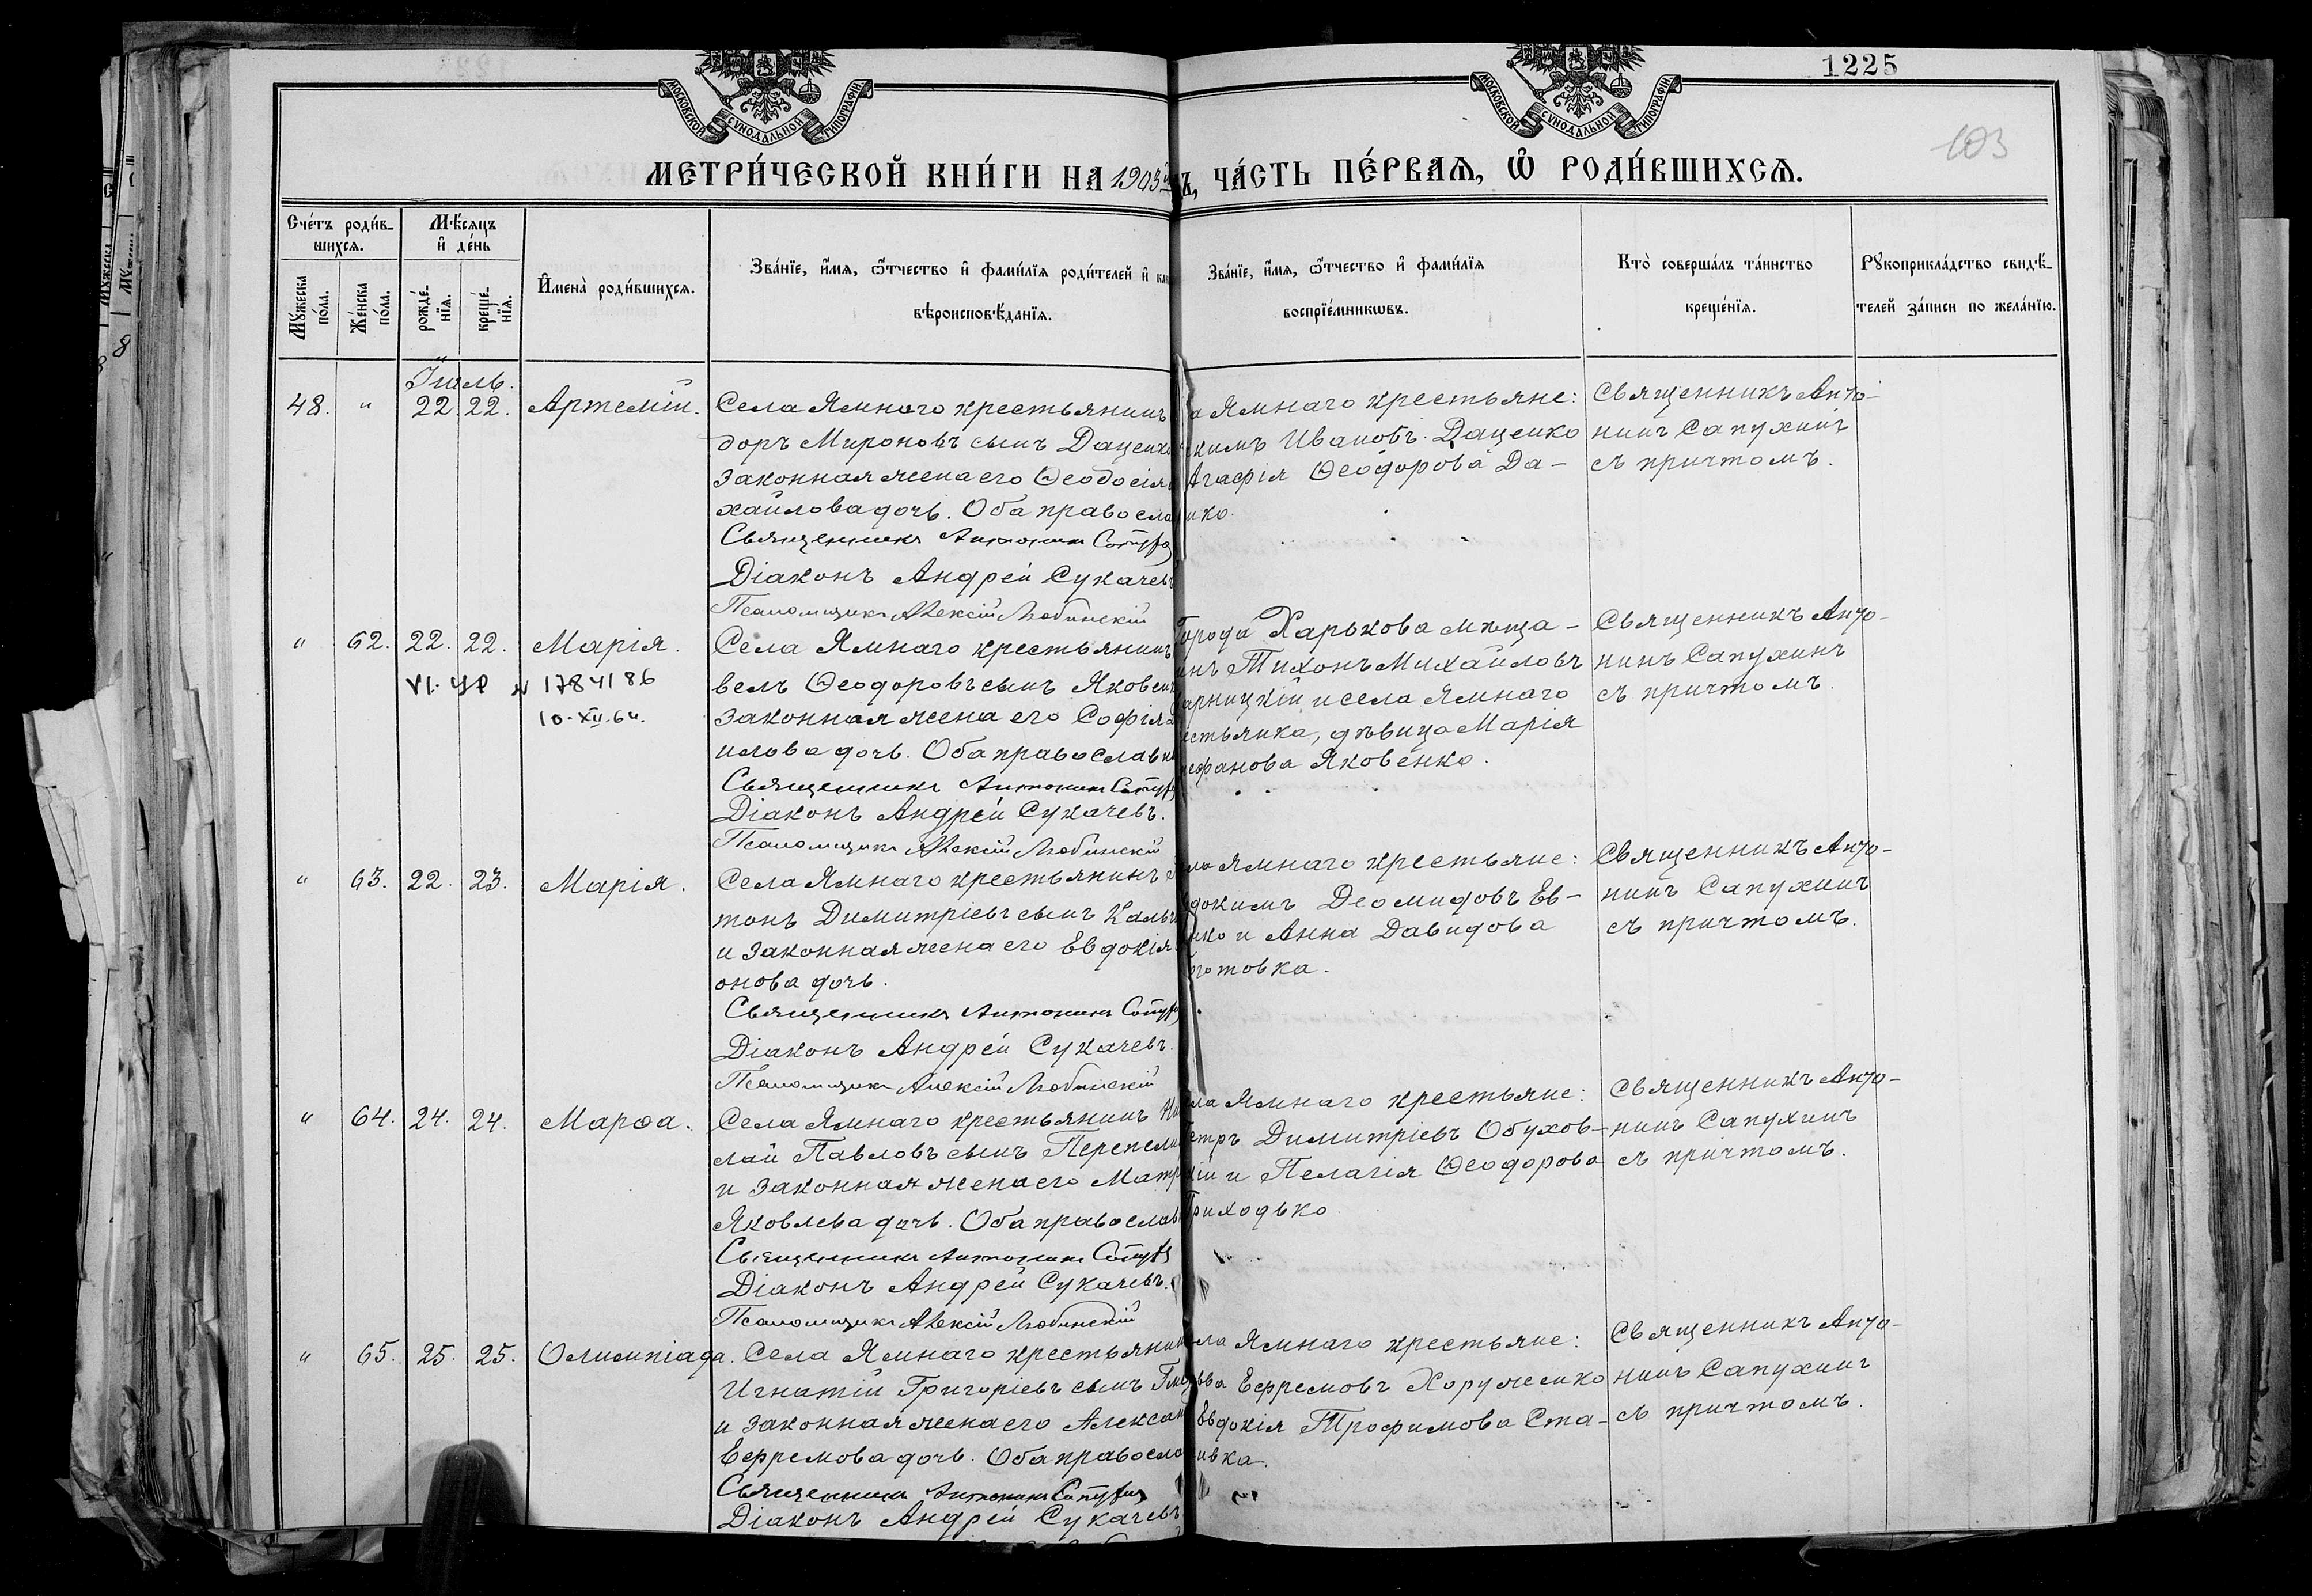 МОСКОВСКОЙ СѴНОДАЛЬНОЙ ТИПОГРАФІИ
МОСКОВСКОЙ СѴНОДАЛЬНОЙ ТИПОГРАФІИ
1225
103
МЕТРИ́ЧЕСКОЙ КНИ́ГИ НА 1903
Ъ, ЧА́СТЬ ПЕ́РВАѦ, Ѡ҆ РОДИ́ВШИХСѦ.
Сче́тъ роди́в-
шихсѧ.
Мꙋ́жеска
по́ла.
Же́нска
по́ла.
Мѣ́сѧцъ
и҆ де́нь
рожде́-
нїѧ.
креще́-
нїѧ.
И҆мена̀ роди́вшихсѧ.
Зва́нїе, и҆́мѧ, ѻ҆́тчество и҆ фами́лїѧ роди́телей и҆
вѣроисповѣ́данїѧ.
Зва́нїе, и҆́мѧ, ѻ҆́тчество и҆ фами́лїѧ
воспрїе́мникѡвъ.
Кто̀ соверша́лъ та́инство
креще́нїѧ.
Рꙋкоприкла́дство свидѣ́-
телей за́писи по жела́нїю.
Іюль.
48. " 22. 22. Артемій.
Села Ямнаго крестьянинъ
доръ Мироновъ сынъ Даценко
законная жена его Ѳеодосія
хайлова дочь. Оба правосла
Священникъ Антонин Сапух
Діаконъ Андрей Сукачевъ
Псаломщикъ Алексій Любинскій
а Ямнаго крестьяне:
кимъ Ивановъ Даценко
Агафія Ѳеодорова Да-
нко.
Священникъ Анто-
нинъ Сапухинъ
съ причтомъ.
" 62. 22. 22. Марія.
VI-УР N 1784186
10-XII-64.
Села Ямнаго крестьянинъ
велъ Ѳеодоровъ сынъ Яковен
законная жена его Софія
илова дочь. Оба православн
Священникъ Антонин Сапух
Діаконъ Андрей Сукачевъ.
Псаломщикъ Алексій Любинскій
Города Харькова мѣща-
инъ Тихонъ Михайловъ
арницкій и села Ямнаго
естьянка, дѣвица Марія
ефанова Яковенко.
Священникъ Анто-
нинъ Сапухинъ
съ причтомъ.
" 63. 22. 23. Марія.
Села Ямнаго крестьянинъ
тонъ Димитріевъ сынъ Кальч
и законная жена его Евдокія
онова дочь.
Священникъ Антонин Сапух
Діаконъ Андрей Сукачевъ.
Псаломщикъ Алексій Любинскій
ла Ямнаго крестьяне:
докимъ Деомидовъ Ев-
нко и Анна Давидова
готовка.
Священникъ Анто-
нинъ Сапухинъ
съ причтомъ.
" 64. 24. 24. Марѳа.
Села Ямнаго крестьянинъ Ни
лай Павловъ сынъ Перепели
и законная жена его Матр
Яковлева дочь. Оба православ
Священникъ Антонин Сапух
Діаконъ Андрей Сукачевъ.
Псаломщикъ Алексій Любинскій
ла Ямнаго крестьяне:
етръ Димитріевъ Обухов-
кій и Пелагія Ѳеодорова
Приходько
Священникъ Анто-
нинъ Сапухинъ
съ причтомъ.
" 65. 25. 25. Олимпіада.
Села Ямнаго крестьянин
Игнатій Григоріевъ сынъ
и законная жена его Алексан
Ефремова дочь. Оба правосла
Священникъ Антонин Сапухин
Діаконъ Андрей Сукачевъ
ла Ямнаго крестьяне:
ва Ефремовъ Хоруженко
Евдокія Трофимова Ста-
ивка.
Священникъ Анто-
нинъ Сапухинъ
съ причтомъ.